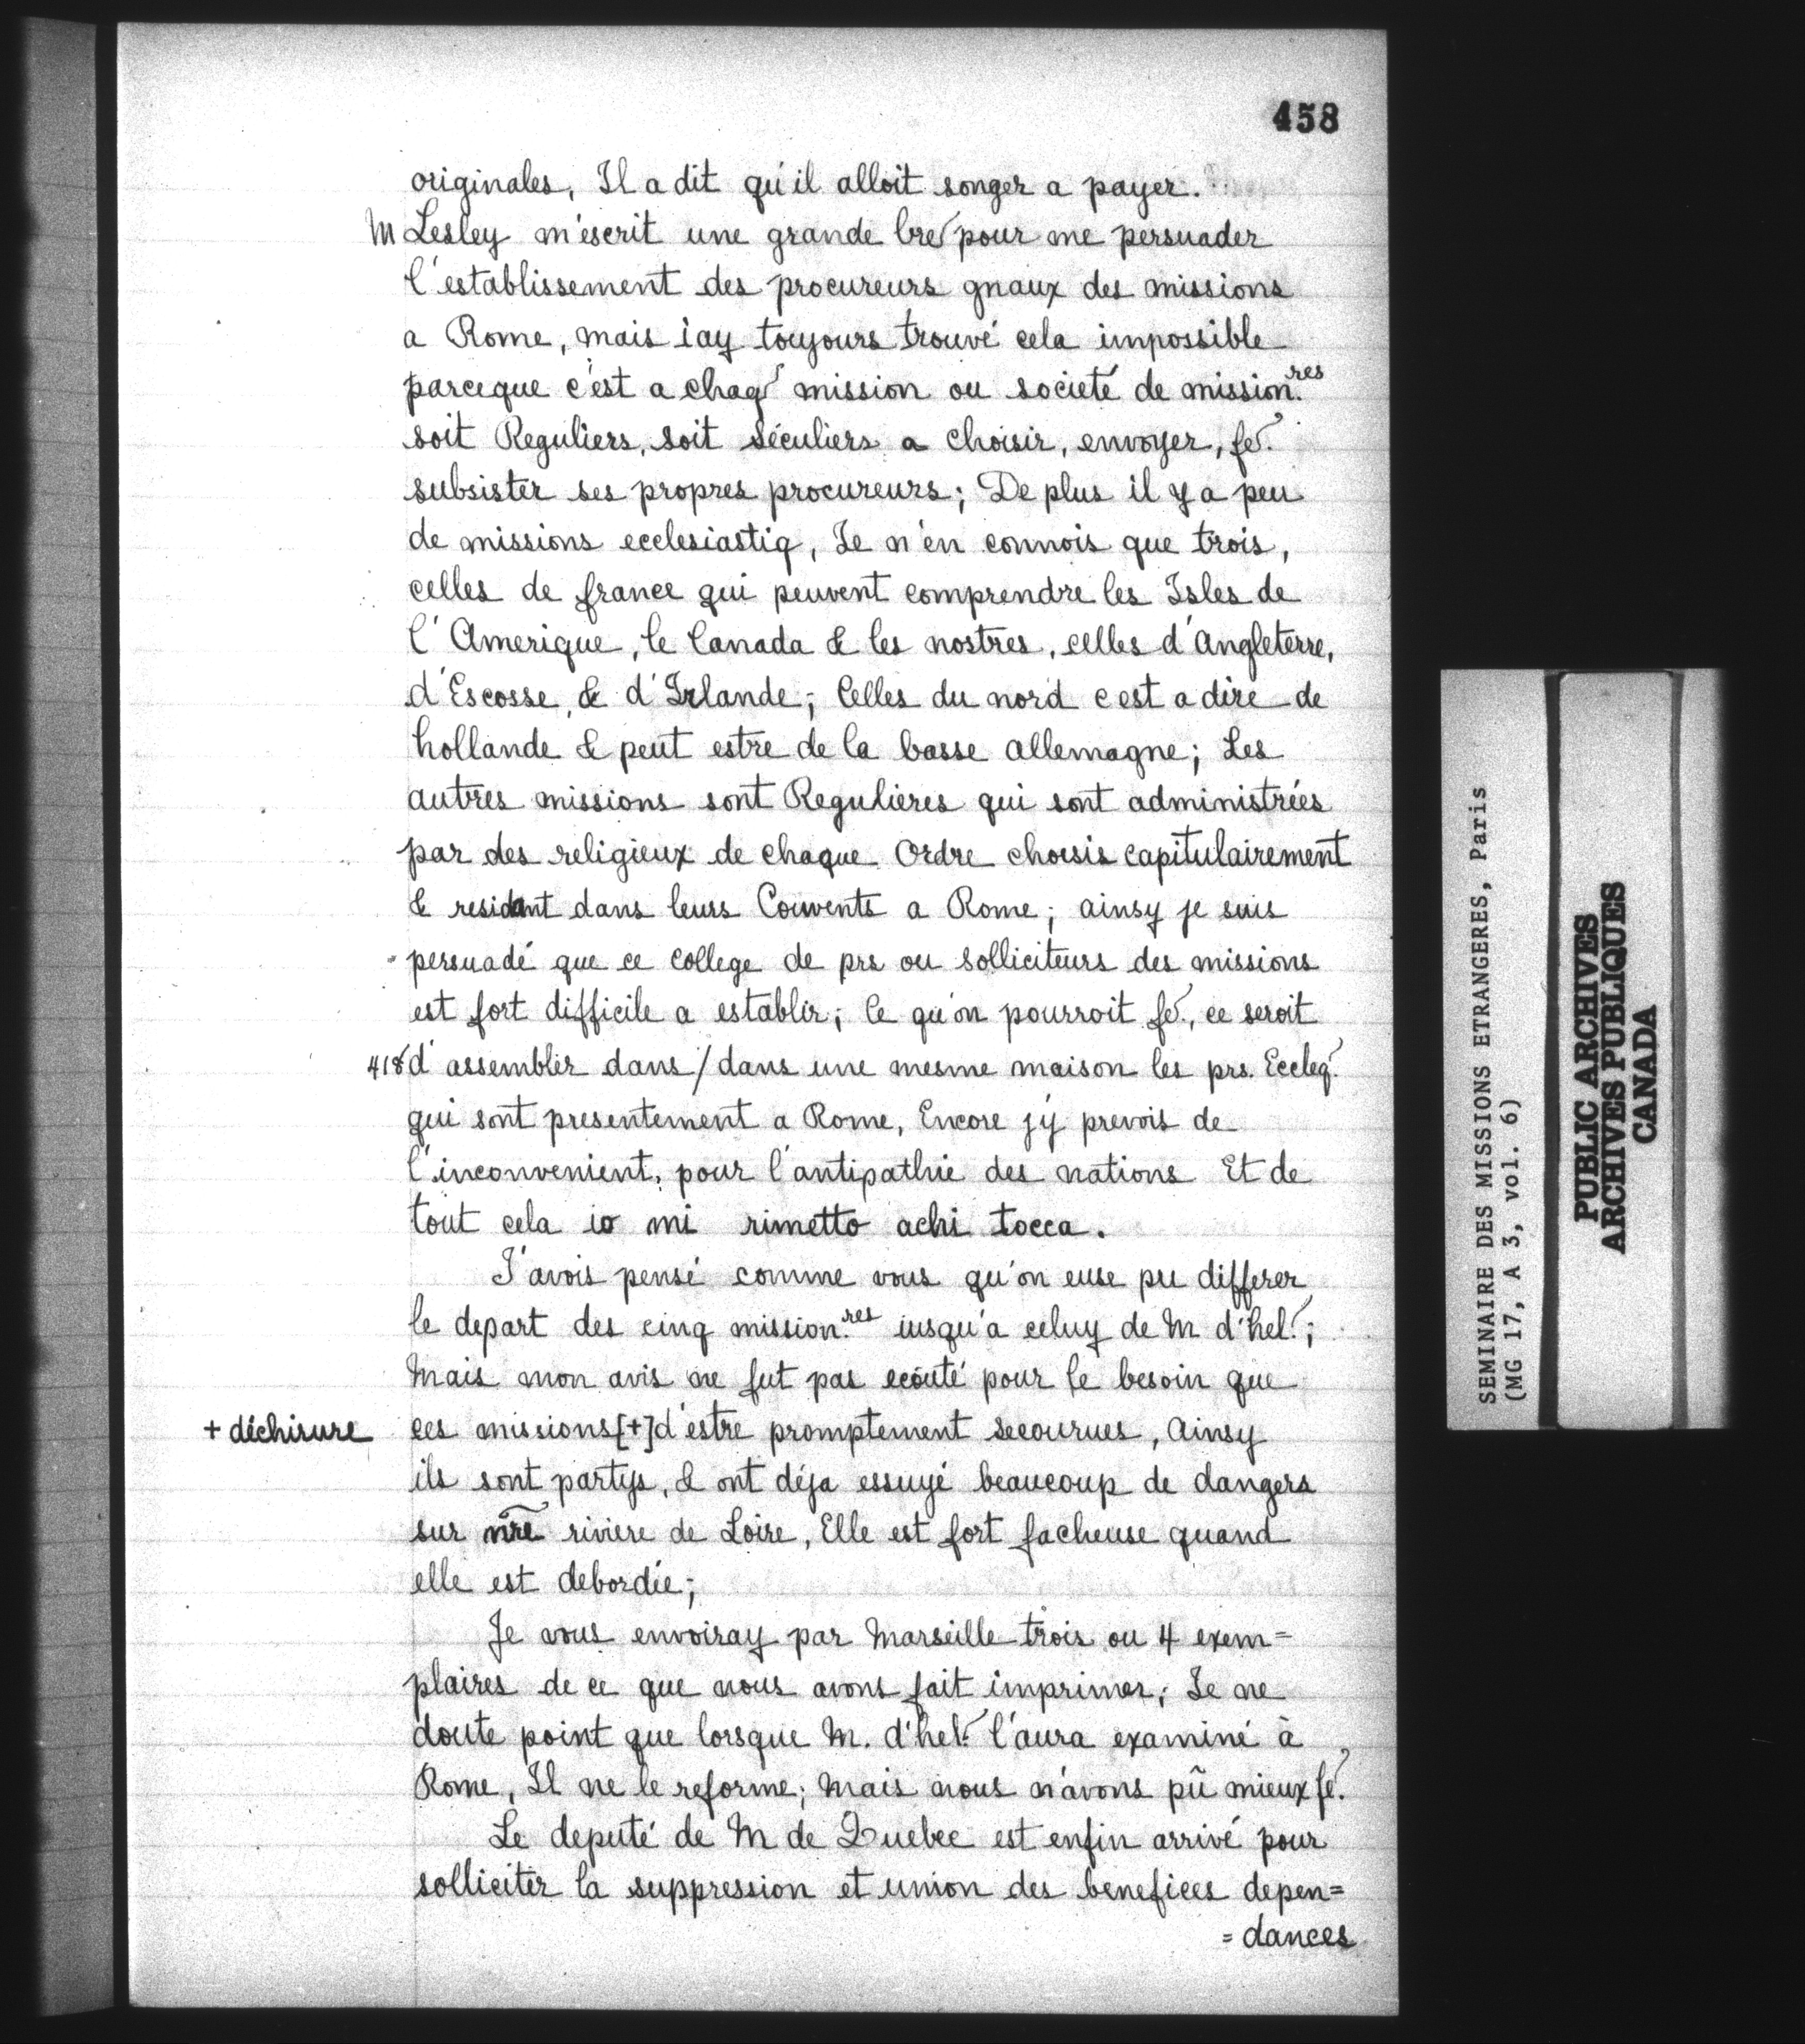 458
originales, Il a dit qu'il alloit songer a payer.
M Lesley m'escrit une grande lre pour me persuader
l'establissement des procureurs gnaux des missions
a Rome, mais i'ay toujours trouvé cela impossible
parceque c'est a chaq mission ou societé de mission.res
soit Reguliers, soit séculiers a choisir, envoyer, fe.
subsister ses propres procureurs; De plus il y a peu
de missions ecclesiastiq, Je n'en connois que trois,
celles de france qui peuvent comprendre les Isles de
l'Amerique, le Canada & les nostres, celles d'Angleterre,
d'Escosse, & d'Irlande; Celles du nord c'est a dire de
hollande & peut estre de la basse allemagne; Les
autres missions sont Regulieres qui sont administrées
par des religieux de chaque Ordre choisis capitulairement
& residant dans leurs Couvents a Rome; ainsy je suis
persuadé que ce college de prs ou solliciteurs des missions
est fort difficile a establir; Ce qu'on pourroit fe., ce seroit
418 d'assembler dans / dans une mesme maison les prs. Eccleq.
qui sont presentement a Rome, Encore j'y prevois de
l'inconvenient, pour l'antipathie des nations Et de
tout cela io mi rimetto achi tocca.
J'avois pensé comme vous qu'on euse pu differer
le depart des cinq mission.res iusqu'a celuy de M d'hel.;
Mais mon avis ne fut pas ecouté pour le besoin que
+ déchirure
ces missions [+] d'estre promptement secourues, ainsy
ils sont partys, & ont déja essuyé beaucoup de dangers
sur nre riviere de Loire, Elle est fort facheuse quand
elle est debordée;
Je vous envoiray par Marseille trois ou 4 exem=
plaires de ce que nous avons fait imprimer; Je ne
doute point que lorsque M. d'hel. l'aura examiné à
Rome, Il ne le reforme; Mais nous n'avons pû mieux fe.
Le deputé de M de Quebec est enfin arrivé pour
solliciter la suppression et union des benefices depen=
=dances
SEMINAIRE DES MISSIONS ETRANGERES, Paris
(MG 17, A 3, vol. 6)
PUBLIC ARCHIVES
ARCHIVES PUBLIQUES
CANADA